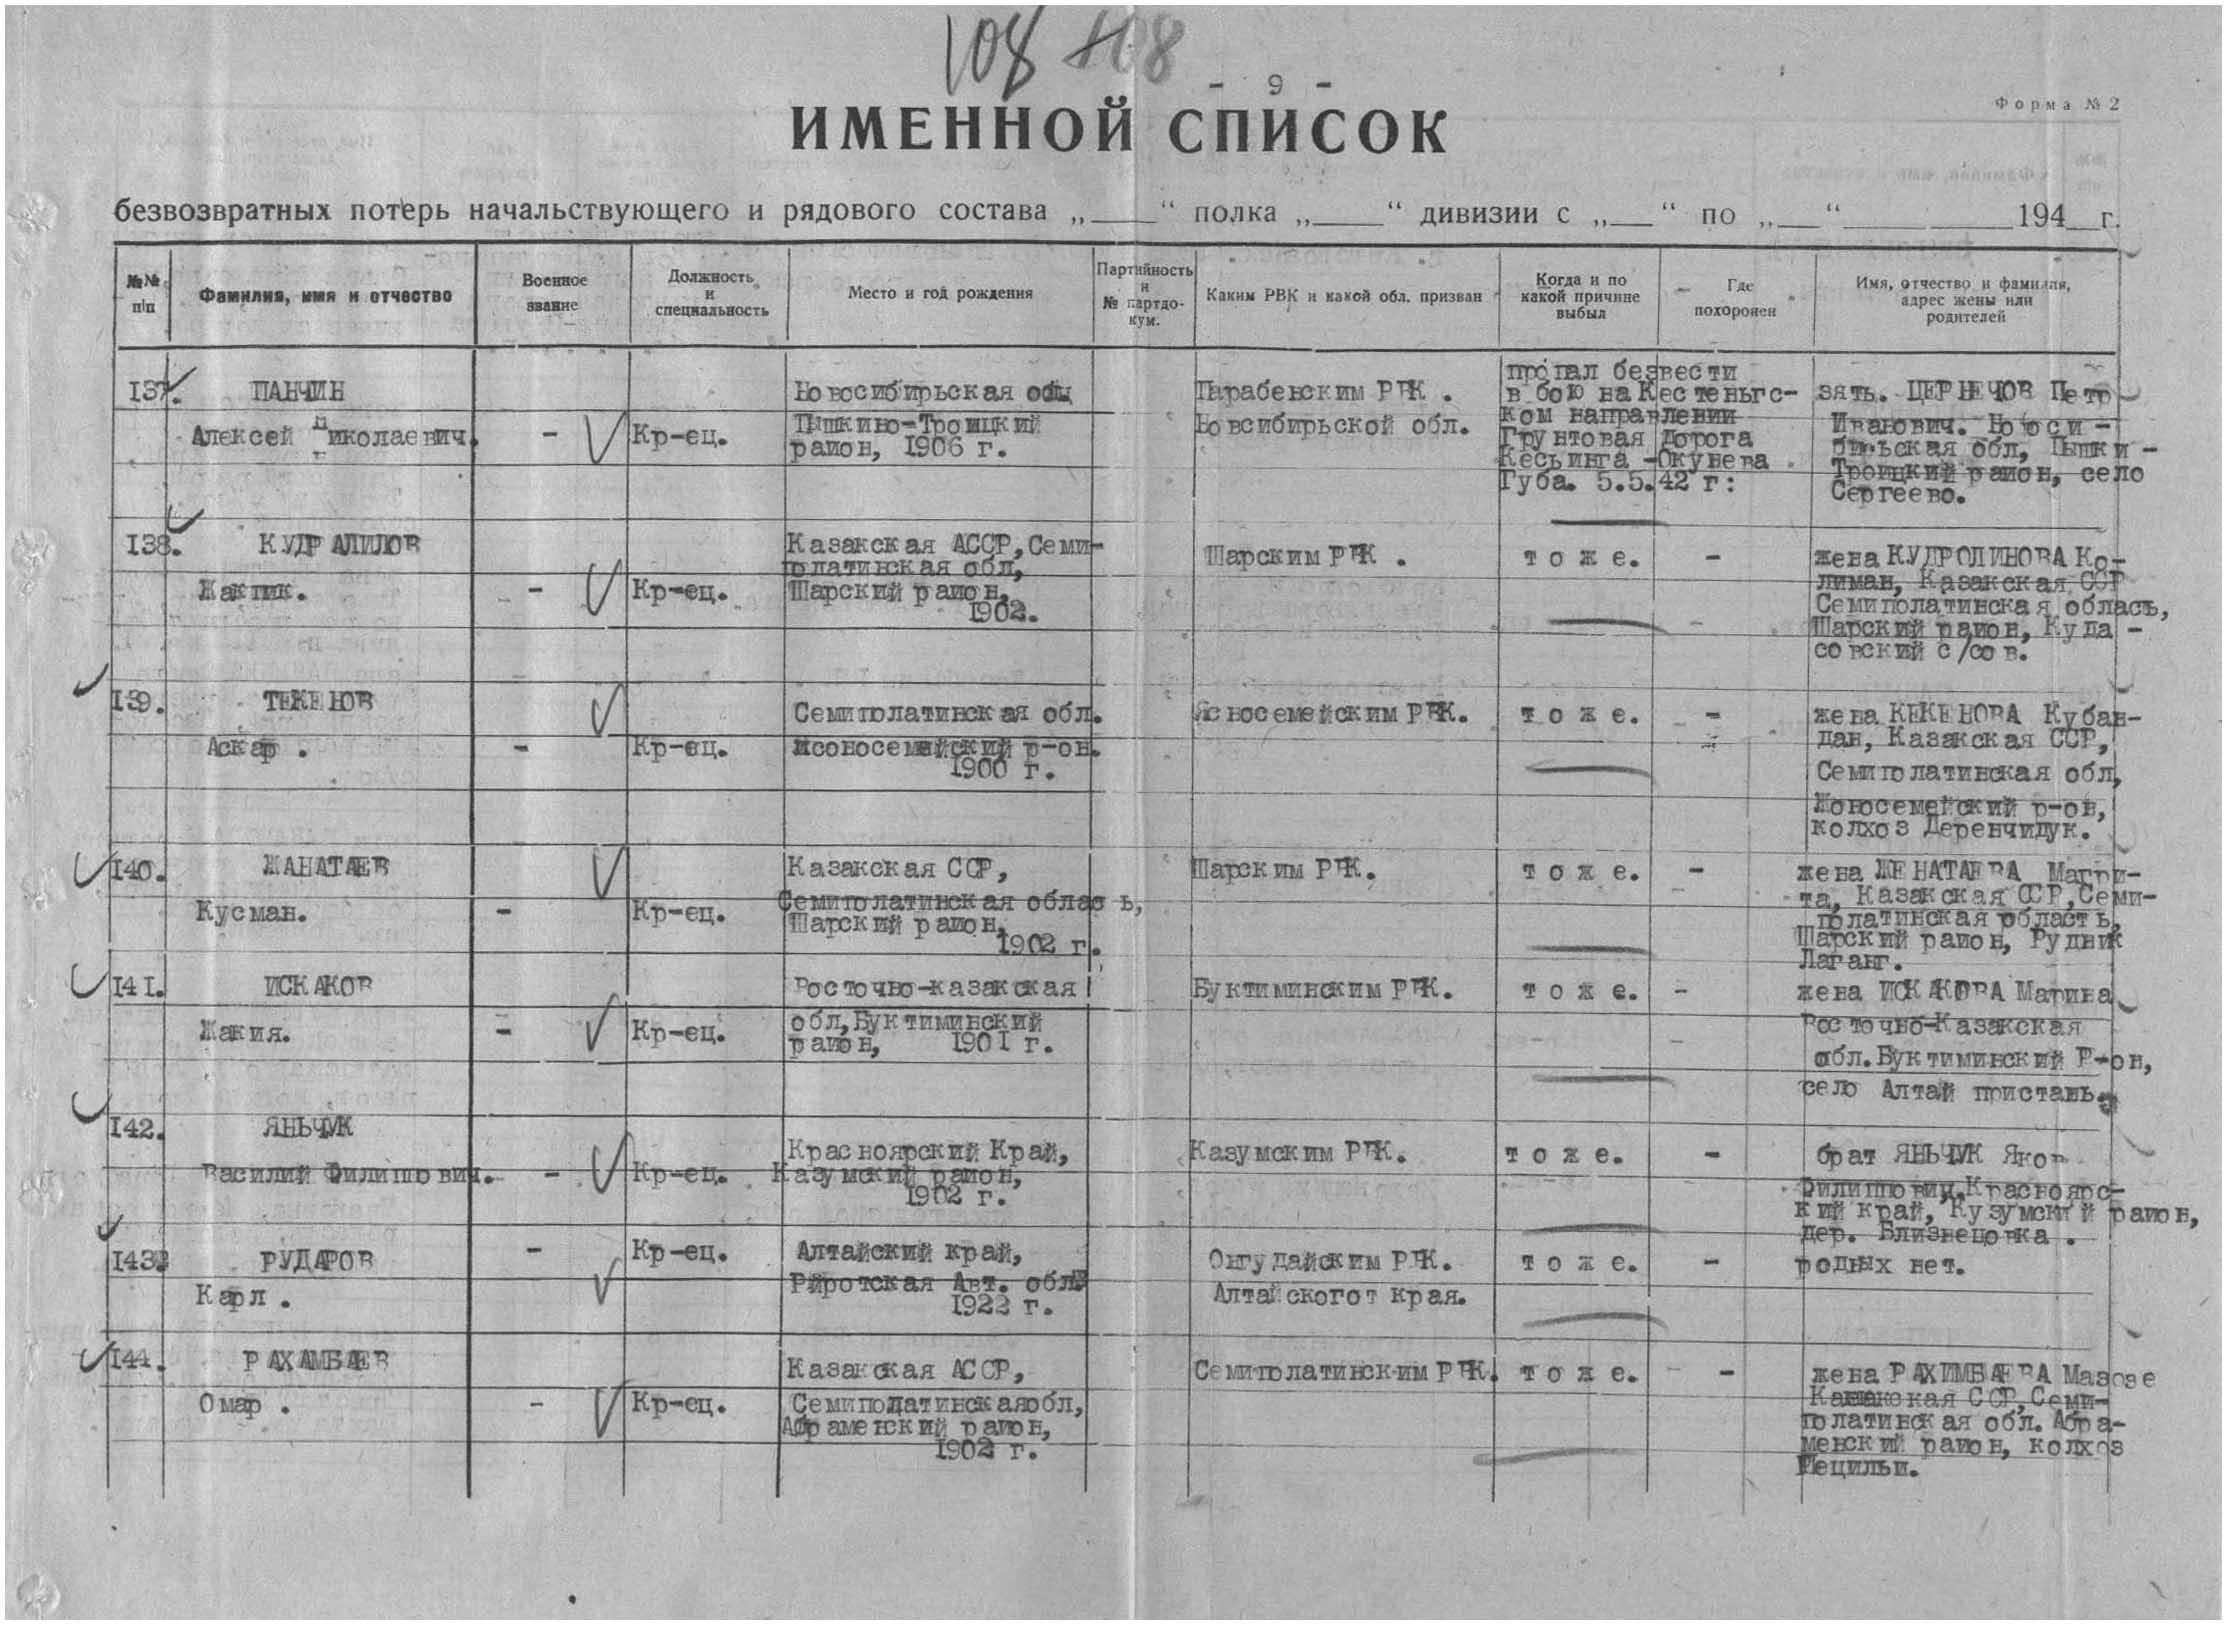 108 108
- 9 -
Форма № 2
ИМЕННОЙ СПИСОК
безвозвратных потерь начальствующего и рядового состава „____“ полка „____“ дивизии с „__“ по „__“ ____ ____ 194__г.
№№ п/п
Фамилия, имя и отчество
Военное звание
Должность и специальность
Место и год рождения
Партийность и № партдокум.
Каким РВК и какой обл. призван
Когда и по какой причине выбыл
Где похоронен
Имя, отчество и фамилия, адрес жены или родителей
137.
ПАНЧИН
Алексей Николаевич.
-
Кр-ец.
Новосибирьская общ
Пышкино-Троицкий
район, 1906 г.
Парабенским РВК .
Новсибирьской обл.
пропал безвести
в бою на Кестеньгс-
ком направлении
Грунтовая дорога
Кесьинга -Окунева
Губа. 5.5.42 г:
зять. ЦЕРНЕЧОВ Петр
Иванович. Новоси -
бирьская обл, Пышки -
Троицкий район, село
Сергеево.
138.
КУДРАЛИЛОВ
Жакпик.
-
Кр-ец.
Казакская АССР, Семи-
полатинская обл,
Шарский район,
1902.
Шарским РВК .
т о ж е.
-
жена КУДРОЛИНОВА Ко-
лиман, Казакская ССР
Семиполатинская обласъ,
Шарский район, Куда -
совский с/сов.
139.
ТЕКЕНОВ
Аскар .
-
Кр-ец.
Семиполатинская обл.
Жсоносемейский р-он.
1900 г.
Ясносемейским РВК.
т о ж е.
-
жена КЕКЕНОВА Кубан-
дан, Казакская ССР,
Семиполатинская обл,
Жоносемейский р-он,
колхоз Деренчидук.
140.
ЖАНАТАЕВ
Кусман.
-
Кр-ец.
Казакская ССР,
Семиполатинская облас ь,
Шарский район,
1902 г.
Шарским РВК.
т о ж е.
-
жена ЖЕНАТАЕВА Магри-
та, Казакская ССР, Семи-
полатинская область,
Шарский район, Рудник
Лаганг.
141.
ИСКАКОВ
Жакия.
-
Кр-ец.
Восточно-казакская
обл, Буктиминский
район, 1901 г.
Буктиминским РВК.
т о ж е.
-
жена ИСКАКОВА Марина
Восточно-Казакская
обл. Буктиминский Р-он,
село Алтай пристань.
142.
ЯНЬЧУК
Василий Филиппович.
-
Кр-ец.
Красноярский Край,
Казумский район,
1902 г.
Казумским РВК.
т о ж е.
-
брат ЯНЬЧУК Яков
Филиппович, Красноярс-
кий край, Кузумский район,
дер. Близнецовка .
143.
РУДАРОВ
Карл .
-
Кр-ец.
Алтайский край,
Ряйротская Авт. обл.
1922 г.
Онгудайским РВК.
Алтайскогот края.
т о ж е.
-
родных нет.
144.
РАХАМБАЕВ
Омар .
-
Кр-ец.
Казакская АССР,
Семиполатинскаяобл,
Абраменский район,
1902 г.
Семиполатинским РВК.
т о ж е.
-
жена РАХИМБАЕВА Мазозе
Казакская ССР, Семи-
полатинская обл. Абра-
менский район, колхоз
Мецильи.